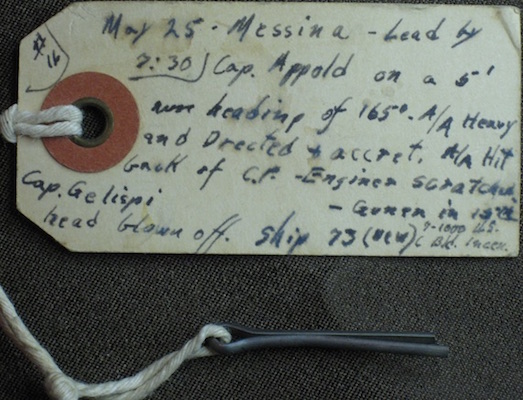 # 16
May 25 - Messina - Lead by
7:30 Cap. Appold on a 5'
run heading of 165°. A/A Heavy
and Drected + accret. A/A Hit
back of C.P. - Enginer scratched.
Cap. Gelispi - Gunen in
head blown off. Ship 73 (new) 7-1000 U.S.